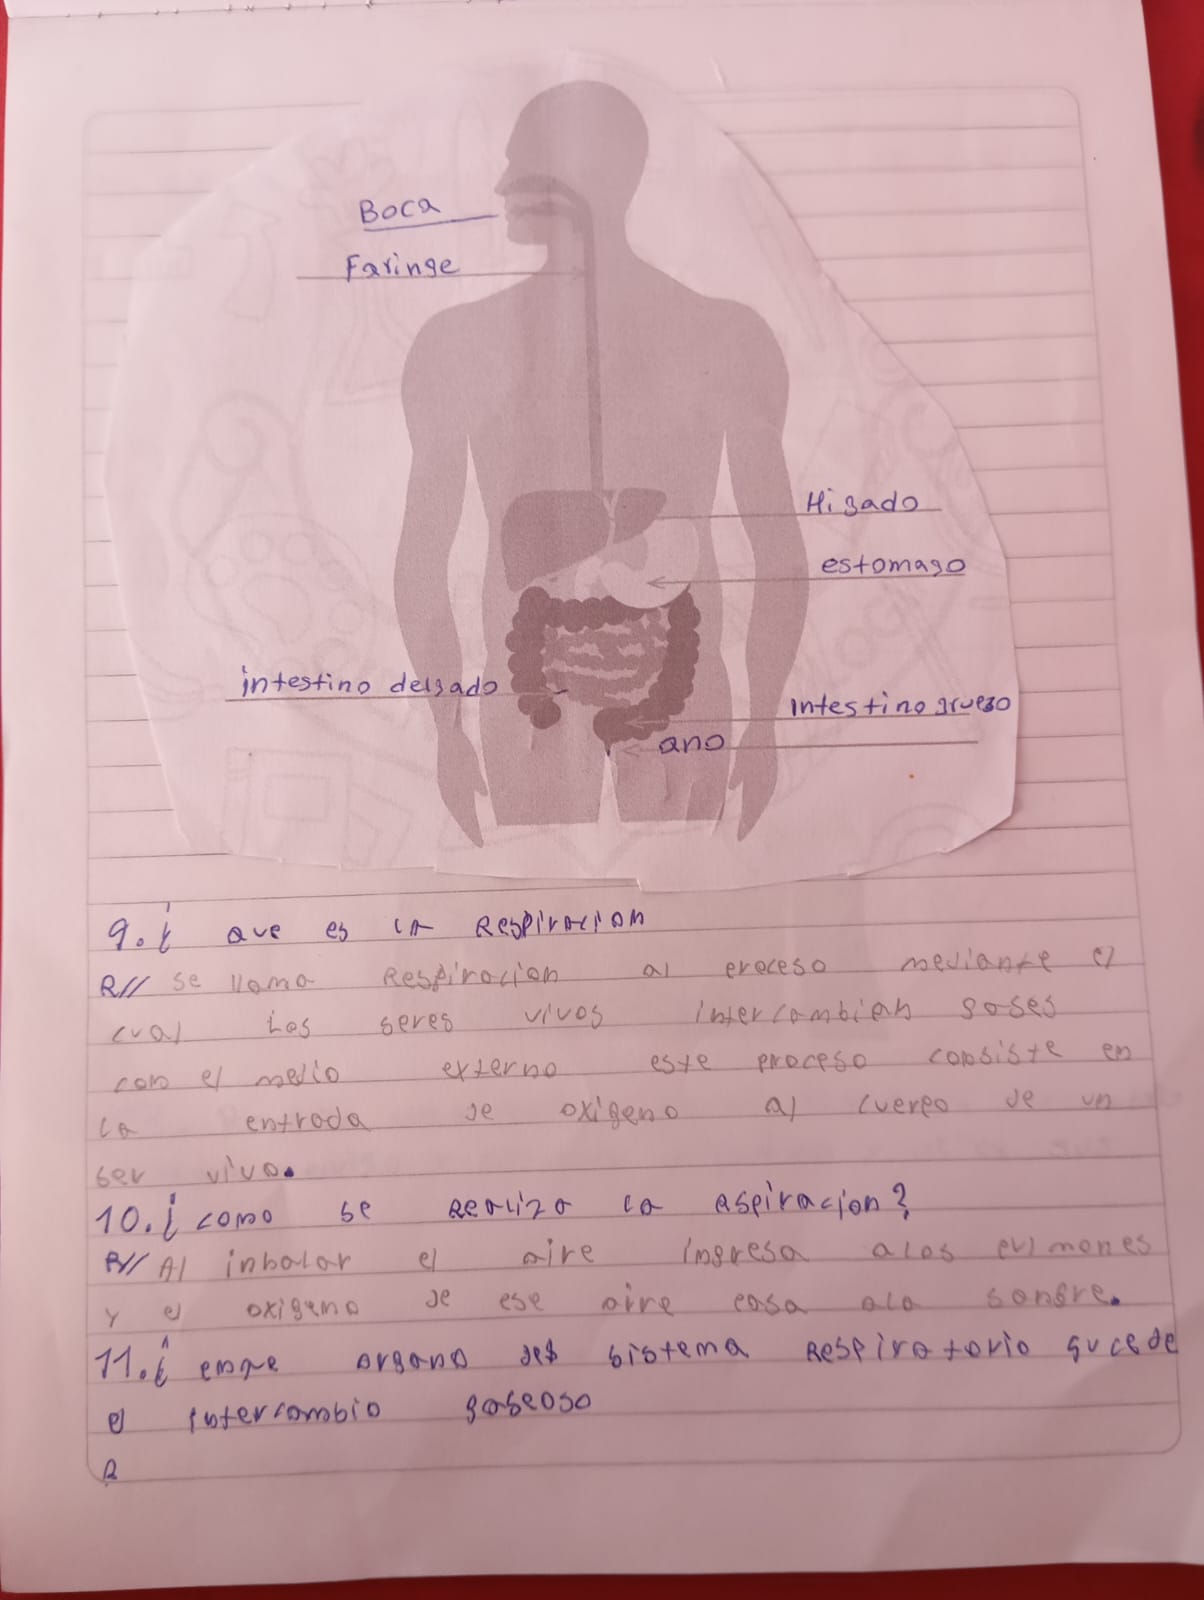 Boca
Faringe
Higado
estomago
intestino delgado
intestino gruezo
ano
9. ¿ que es la Respiracion
R// se llama Respiracion al proceso mediante el
cual los seres vivos intercambian gases
con el medio externo este proceso consiste en
la entrada de oxigeno al cuerpo de un
ser vivo.
10. ¿ como se Realiza la aspiracion?
R// Al inhalar el aire ingresa alos pulmones
y el oxigeno de ese aire pasa ala sangre.
11. ¿ enque organo del sistema Respiratorio sucede
el intercambio gaseoso
R